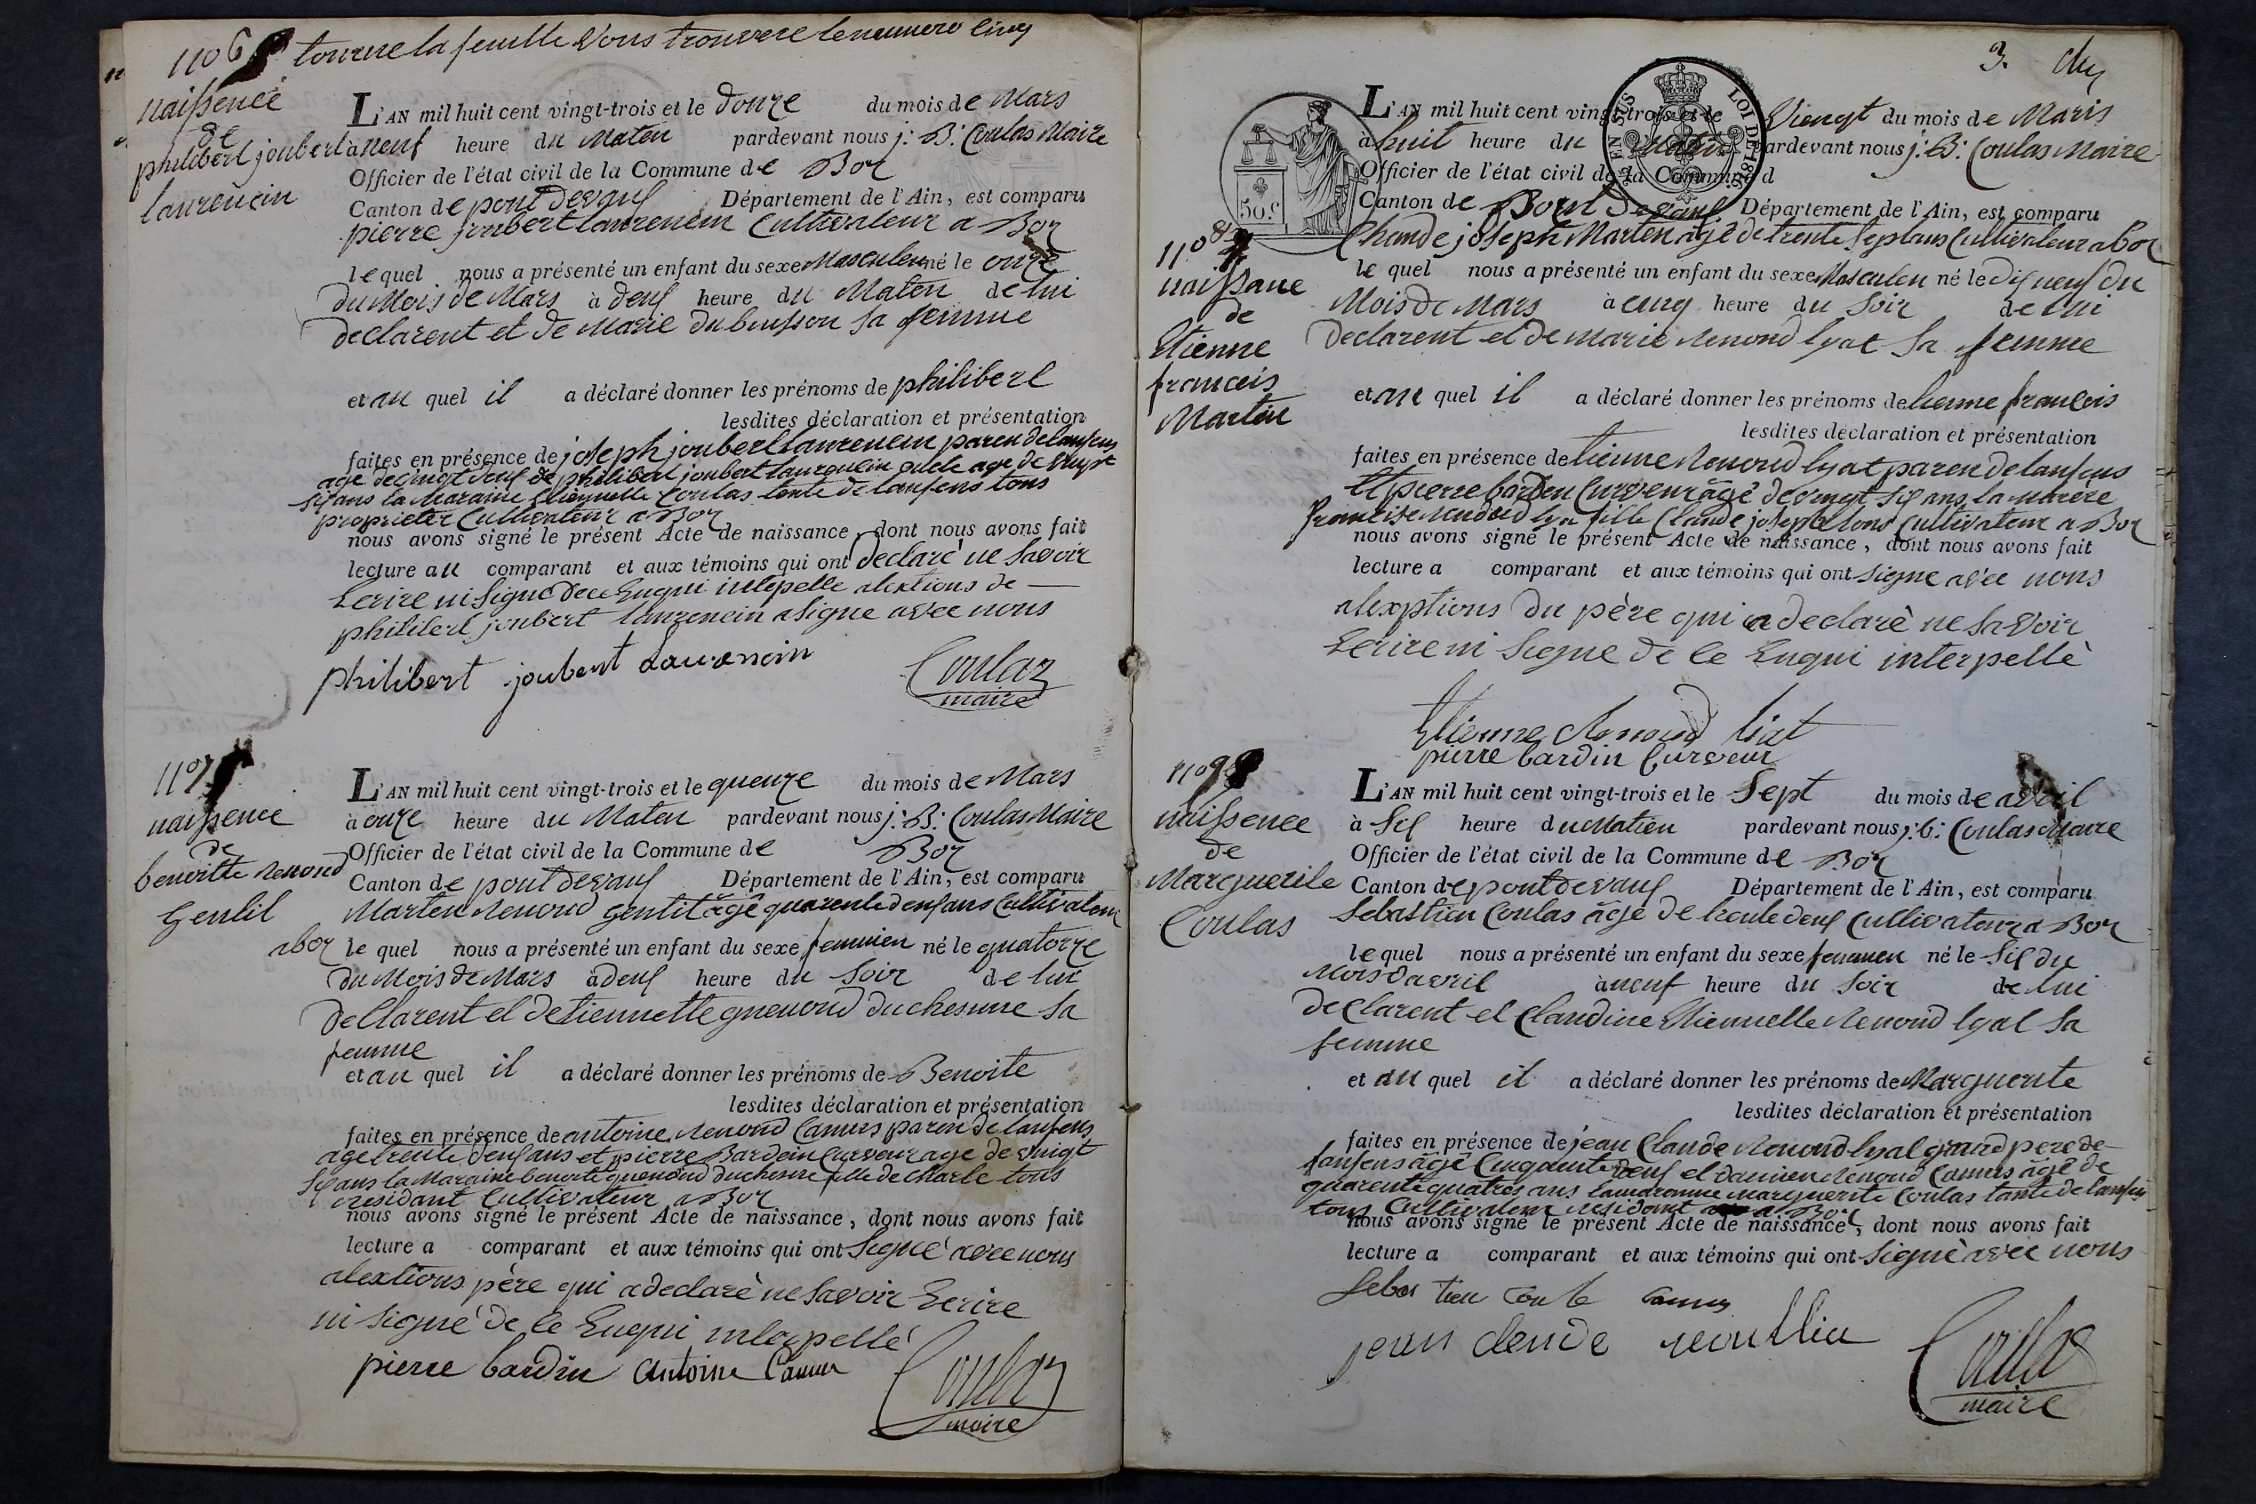 1106 tourne la feuille Vous trouvere le numero cinq
naissence
de
philibert joubert
laurencin
L'AN mil huit cent vingt-trois et le Douze du mois de Mars
à neuf heure du Maten pardevant nous j: B: Coulas Maire
Officier de l'état civil de la Commune de Boz
Canton de pont devaux Département de l'Ain, est comparu
pierre joubert laurencin Cultivateur a Boz
le quel nous a présenté un enfant du sexe Masculen né le onze
du Mois de Mars à deux heure du Maten de lui
declarent et de Marie dubuisson sa femme
et au quel il a déclaré donner les prénoms de philibert
lesdites déclaration et présentation
faites en présence de joseph joubert laurencin paren de lanfens
age de vingt deux de philibert joubert laurencin age de vingt
six ans la Maraine Etiennette Coulas tente de lanfens tous
proprieter Cultivateur a Boz
nous avons signé le présent Acte de naissance, dont nous avons fait
lecture au comparant et aux témoins qui ont declaré ne savoir
Ecrire ni signe de ce Enqui intepelle alextions de
philibert joubert laurencin a signe avec nous
philibert joubert Laurencin Coulaz
maire
1107
naissence
de
benoitte Renoud
Gentil
L'AN mil huit cent vingt-trois et le quenze du mois de Mars
à onze heure du Maten pardevant nous j: B: Coulas Maire
Officier de l'état civil de la Commune de Boz
Canton de pont devaux Département de l'Ain, est comparu
Marten Renoud gentil âgé quarente deux ans Cultivateur
a boz le quel nous a présenté un enfant du sexe femmien né le quatorze
du Mois de Mars à deux heure du Soir de lui
declarent et detiennette guenoud duchesne sa
femme
et au quel il a déclaré donner les prénoms de Benoite
lesdites déclaration et présentation
faites en présence de antoine Renoud Camus paren de lanfens
age trente deux ans et pierre Bardein Curveur age de vingt
six ans la Maraine benoite guenoud duchesne fille de Charle tous
residant Cultivateur a Boz
nous avons signé le présent Acte de naissance, dont nous avons fait
lecture a comparant et aux témoins qui ont Signé avec nous
alextions père qui a declaré ne savoir Ecrire
ni signé de ce Enqui intepellé
pierre bardin antoine Camu Coulaz
maire
3.
L'AN mil huit cent vingt-trois et le Viengt du mois de Mars
à huit heure du Maten pardevant nous j: B: Coulas Maire
Officier de l'état civil de la Commune d
Canton de Pont Devaux Département de l'Ain, est comparu
50 c
EN SUS LOI DE 1816
1108
naissane
de
Etienne
francois
Marten
Claude joseph Marten agé de trente sept ans Cultivateur a boz
le quel nous a présenté un enfant du sexe Masculen né le dix neuf du
Mois de Mars à cinq heure du Soir de lui
Declarent et de marie Renoud lyat sa femme
et au quel il a déclaré donner les prénoms de tienne francois
lesdites déclaration et présentation
faites en présence de tienne Renoud lyat paren de lanfens
et pierre bardeu Curveur âgé de vingt six ans la marere
francise Renoud fille Claude joseph tous Cultivateur a Boz
nous avons signé le présent Acte de naissance, dont nous avons fait
lecture a comparant et aux témoins qui ont Signe avec nous
alexptions du père qui a declaré ne savoir
Ecrire ni Signe de ce Enqui interpellé
Etienne Renoud liat
pierre bardin Curveur
1109
naissence
de
Marguerite
Coulas
L'AN mil huit cent vingt-trois et le Sept du mois de avril
à Six heure du Matien pardevant nous j: b: Coulas Maire
Officier de l'état civil de la Commune de Boz
Canton de pont de vaux Département de l'Ain, est comparu
Sebastien Coulas âgé de trente deux Cultivateur a Boz
le quel nous a présenté un enfant du sexe femmen né le Six du
Mois davril à neuf heure du Soir de lui
declarent et Claudine Etiennette Renoud lyat sa
femme
et au quel il a déclaré donner les prénoms de Marguerite
lesdites déclaration et présentation
faites en présence de jean Claude Renoud lyat grand pere de
lanfens âgé Cinquente deux et damien Renoud Camus âgé de
quarente quatres ans la maranne Marguerite Coulas tante de lanfens
tous Cultivateur residant a Boz
nous avons signé le présent Acte de naissance, dont nous avons fait
lecture a comparant et aux témoins qui ont Signé avec nous
Sebas tien Camus
jean claude Coulas
maire